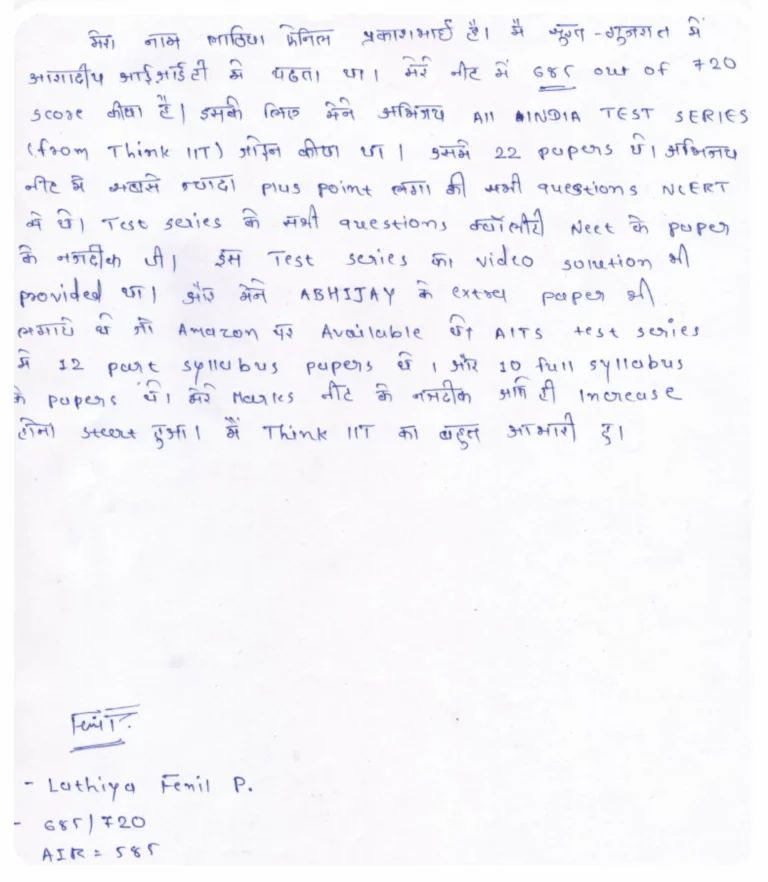 मेरा नाम लाठिया फेनिल प्रकाशभाई है। मै सुरत - गुजरात में
आशादीप आईआईटी मे पढता था। मेरे नीट में 685 out of 720
score कीया है। इसकी लिए मेने अभिजय All INDIA TEST SERIES
(from Think IIT) जोइन कीया था। इसमे 22 papers थे। अभिजय
नीट मे सबसे ज्यादा plus point लगा की सभी questions NCERT
से थे। Test series के सभी questions क्वॉलीटी Neet के paper
के नजदीक थी। इस Test series का video solution भी
provided था। और मेने ABHIJAY के extra paper भी
लगाये थे जो Amazon पर Available थे। AITS test series
मे 12 part syllabus papers थे । और 10 full syllabus
के papers थे। मेरे Marks नीट के नजदीक आते ही Increase
होना start हुआ। मैं Think IIT का बहुत आभारी हु।
Fenil.
- Lathiya Fenil P.
- 685/720
AIR = 585